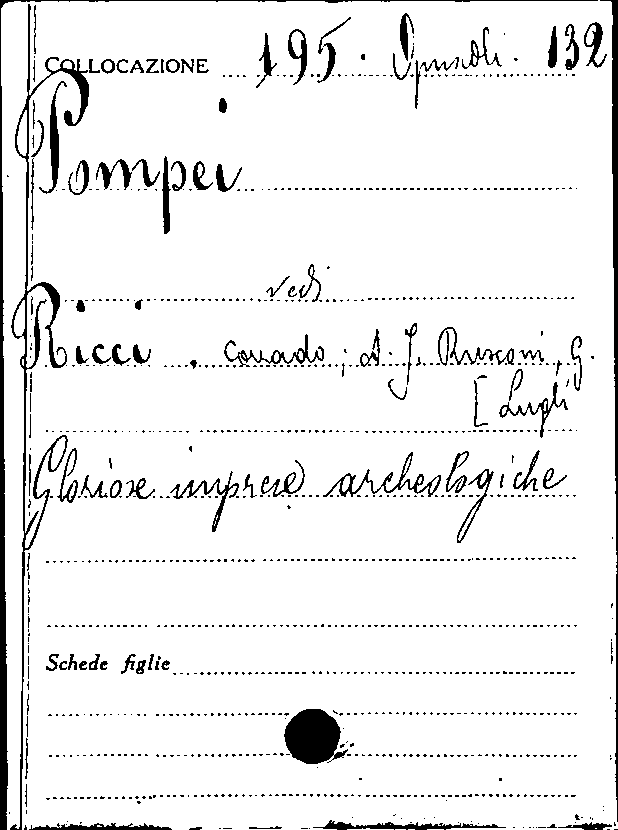 COLLOCAZIONE 195. Opuscoli. 132
Pompei
vedi
Ricci. Corrado; A. J. Rusconi, G.
[Lugli
Gloriose imprese archeologiche
Schede figlie